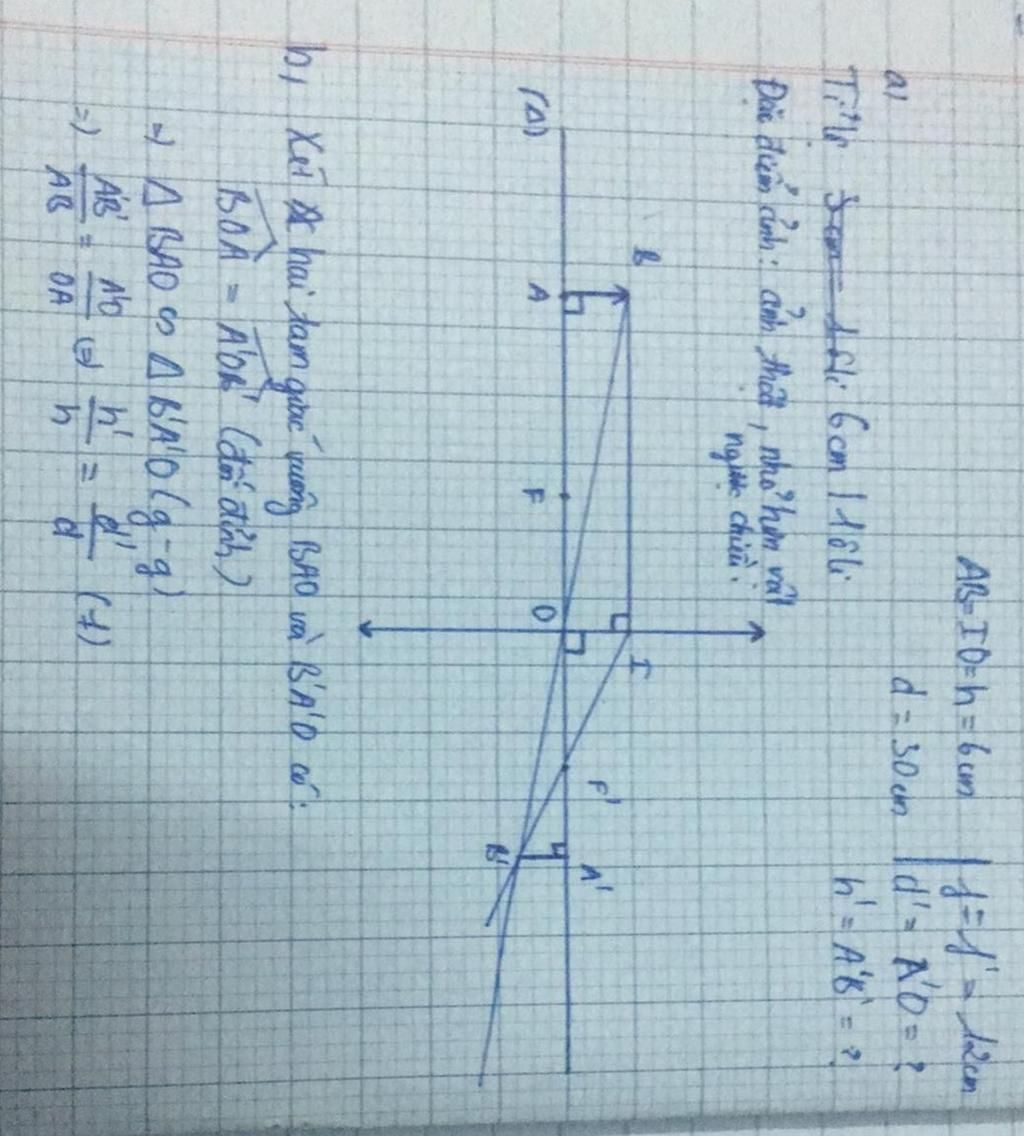 AB = IO = h = 6cm | f = f' = 12cm
d = 30cm | d' = A'O = ?
h' = A'B' = ?
a)
Tỉ lệ 6cm | 1 ôli
Đặc điểm ảnh: ảnh thật, nhỏ hơn vật
ngược chiều.
B
I
(Δ)
A
F
O
F'
A'
B'
b, Xét hai tam giác vuông BAO và B'A'O có:
BOA = A'OB' (đối đỉnh)
=> Δ BAO ∽ Δ B'A'O (g-g)
=> A'B'/AB = A'O/OA <=> h'/h = d'/d (1)